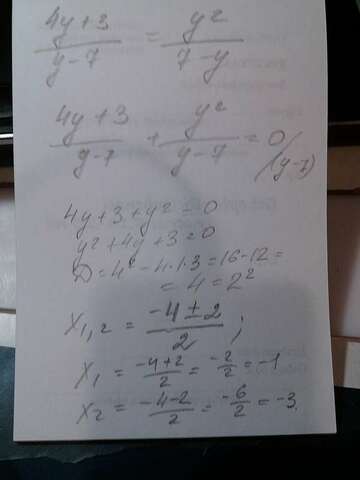 4y+3/y-7 = y²/7-y
4y+3/y-7 + y²/y-7 = 0 /(y-7)
4y+3+y²=0
y²+4y+3=0
D=4²-4·1·3=16-12=
=4=2²
x₁,₂ = -4±2/2 ;
x₁ = -4+2/2 = -2/2 = -1
x₂ = -4-2/2 = -6/2 = -3.